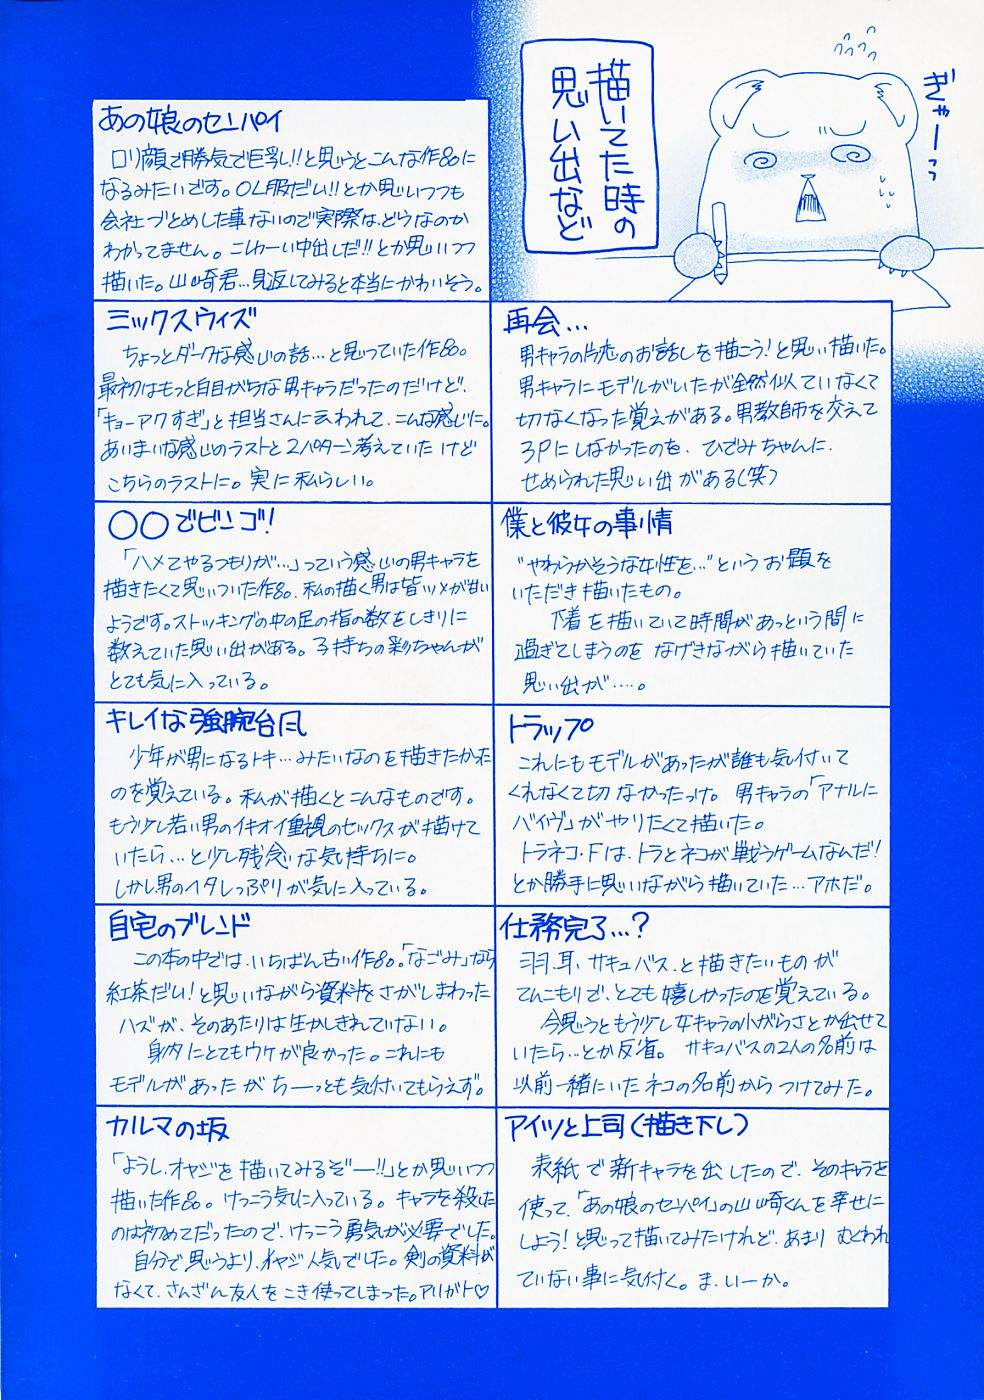 描いてた時の
思い出など
ぎゃーっっ
あの娘のセンパイ
ロリ顔で勝気で巨乳!!と思うとこんな作品に
なるみたいです。OL服だい!!とか思いつつも
会社づとめした事ないので実際は、どうなのか
わかってません。こしかーい中出しだ!!とか思いつつ
描いた。山崎君…見返してみると本当にかわいそう。
ミックスウィズ
ちょっとダークな感じの話…と思っていた作品。
最初はもっと自目がちな男キャラだったのだけど、
「キョーアクすぎ」と担当さんに云われて、こんな感じに。
あいまいな感じのラストと2パターン考えていたけど
こちらのラストに。実に私らしい。
○○でビンゴ!
「ハメてやるつもりが…」っていう感じの男キャラを
描きたくて思いついた作品。私の描く男は皆ツメが甘い
ようです。ストッキングの中の足の指の数をしきりに
数えていた思い出がある。子持ちの彩ちゃんが
とても気に入っている。
キレイな強腕台風
少年が男になるトキ…みたいなのを描きたかった
のを覚えている。私が描くとこんなものです。
もう少し若い男のイキオイ重視のセックスが描けて
いたら…と少し残念な気持ちに。
しかし男のイタレっぷりが気に入っている。
自宅のブレンド
この本の中では、いちばん古い作品。「なごみ」なら
紅茶だい!と思いながら資料をさがしまわった
ハズが、そのあたりは生かしきれていない。
身内にとてもウケが良かった。これにも
モデルがあったがちーっとも気付いてもらえず。
カルマの坂
「ようし、オヤジを描いてみるぞー!!」とか思いつつ
描いた作品。けっこう気に入っている。キャラを殺した
のは初めてだったので、けっこう勇気が必要でした。
自分で思うより、オヤジ人気でした。剣の資料が
なくて、さんざん友人をこき使ってしまった。アリガト♡
再会…
男キャラの片恋のお話しを描こう!と思い描いた。
男キャラにモデルがいたが全然似ていなくて
切なくなった覚えがある。男教師を交えて
3Pにしなかったのを、ひでみちゃんに、
せめられた思い出がある(笑)
僕と彼女の事情
"やわらかそうな女性を…"というお題を
いただき描いたもの。
下着を描いていて時間があっという間に
過ぎてしまうのをなげきながら描いていた
思い出が….。
トラップ
これにもモデルがあったが誰も気付いて
くれなくて切なかったっけ。男キャラの「アナルに
バイヴ」がやりたくて描いた。
トラネコ・Fは、トラとネコが戦うゲームなんだ!
とか勝手に思いながら描いていた…アホだ。
仕務完了…?
羽、耳、サキュバス、と描きたいものが
てんこもりで、とても嬉しかったのを覚えている。
今思うともう少し女キャラの小がらさとか出せて
いたら…とか反省。サキュバスの2人の名前は
以前一緒にいたネコの名前からつけてみた。
アイツと上司(描き下し)
表紙で新キャラを出したので、そのキャラを
使って、「あの娘のセンパイ」の山崎くんを幸せに
しよう!と思って描いてみたけれど、あまりむくわれ
ていない事に気付く。ま、いーか。